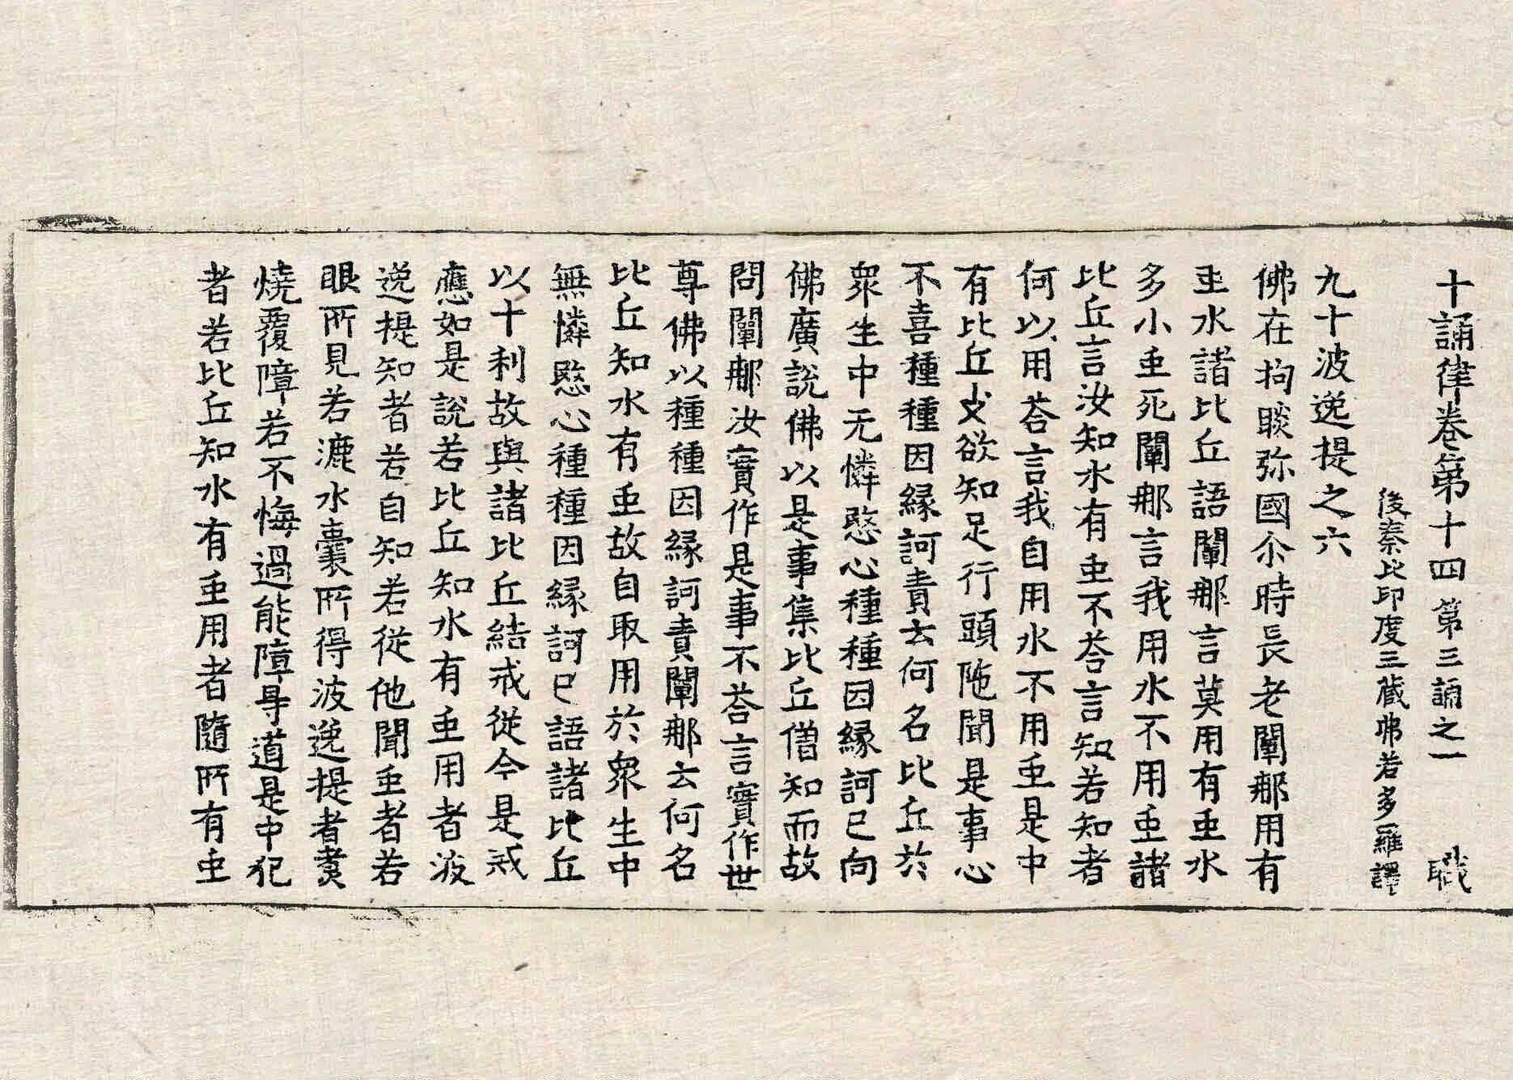 十誦律卷第十四 第三誦之一 職
後秦北印度三藏弗若多羅譯
九十波逸提之六
佛在拘睒弥國尒時長老闡那用有
虫水諸比丘語闡那言莫用有虫水
多小虫死闡那言我用水不用虫諸
比丘言汝知水有虫不荅言知若知者
何以用荅言我自用水不用虫是中
有比丘少欲知足行頭陁聞是事心
不喜種種因縁訶責云何名比丘於
衆生中无憐愍心種種因縁訶已向
佛廣說佛以是事集比丘僧知而故
問闡那汝實作是事不荅言實作世
尊佛以種種因縁訶責闡那云何名
比丘知水有虫故自取用於衆生中
無憐愍心種種因縁訶已語諸比丘
以十利故與諸比丘結戒從今是戒
應如是說若比丘知水有虫用者波
逸提知者若自知若從他聞虫者若
眼所見若漉水囊所得波逸提者煑
燒覆障若不悔過能障㝵道是中犯
者若比丘知水有虫用者隨所有虫